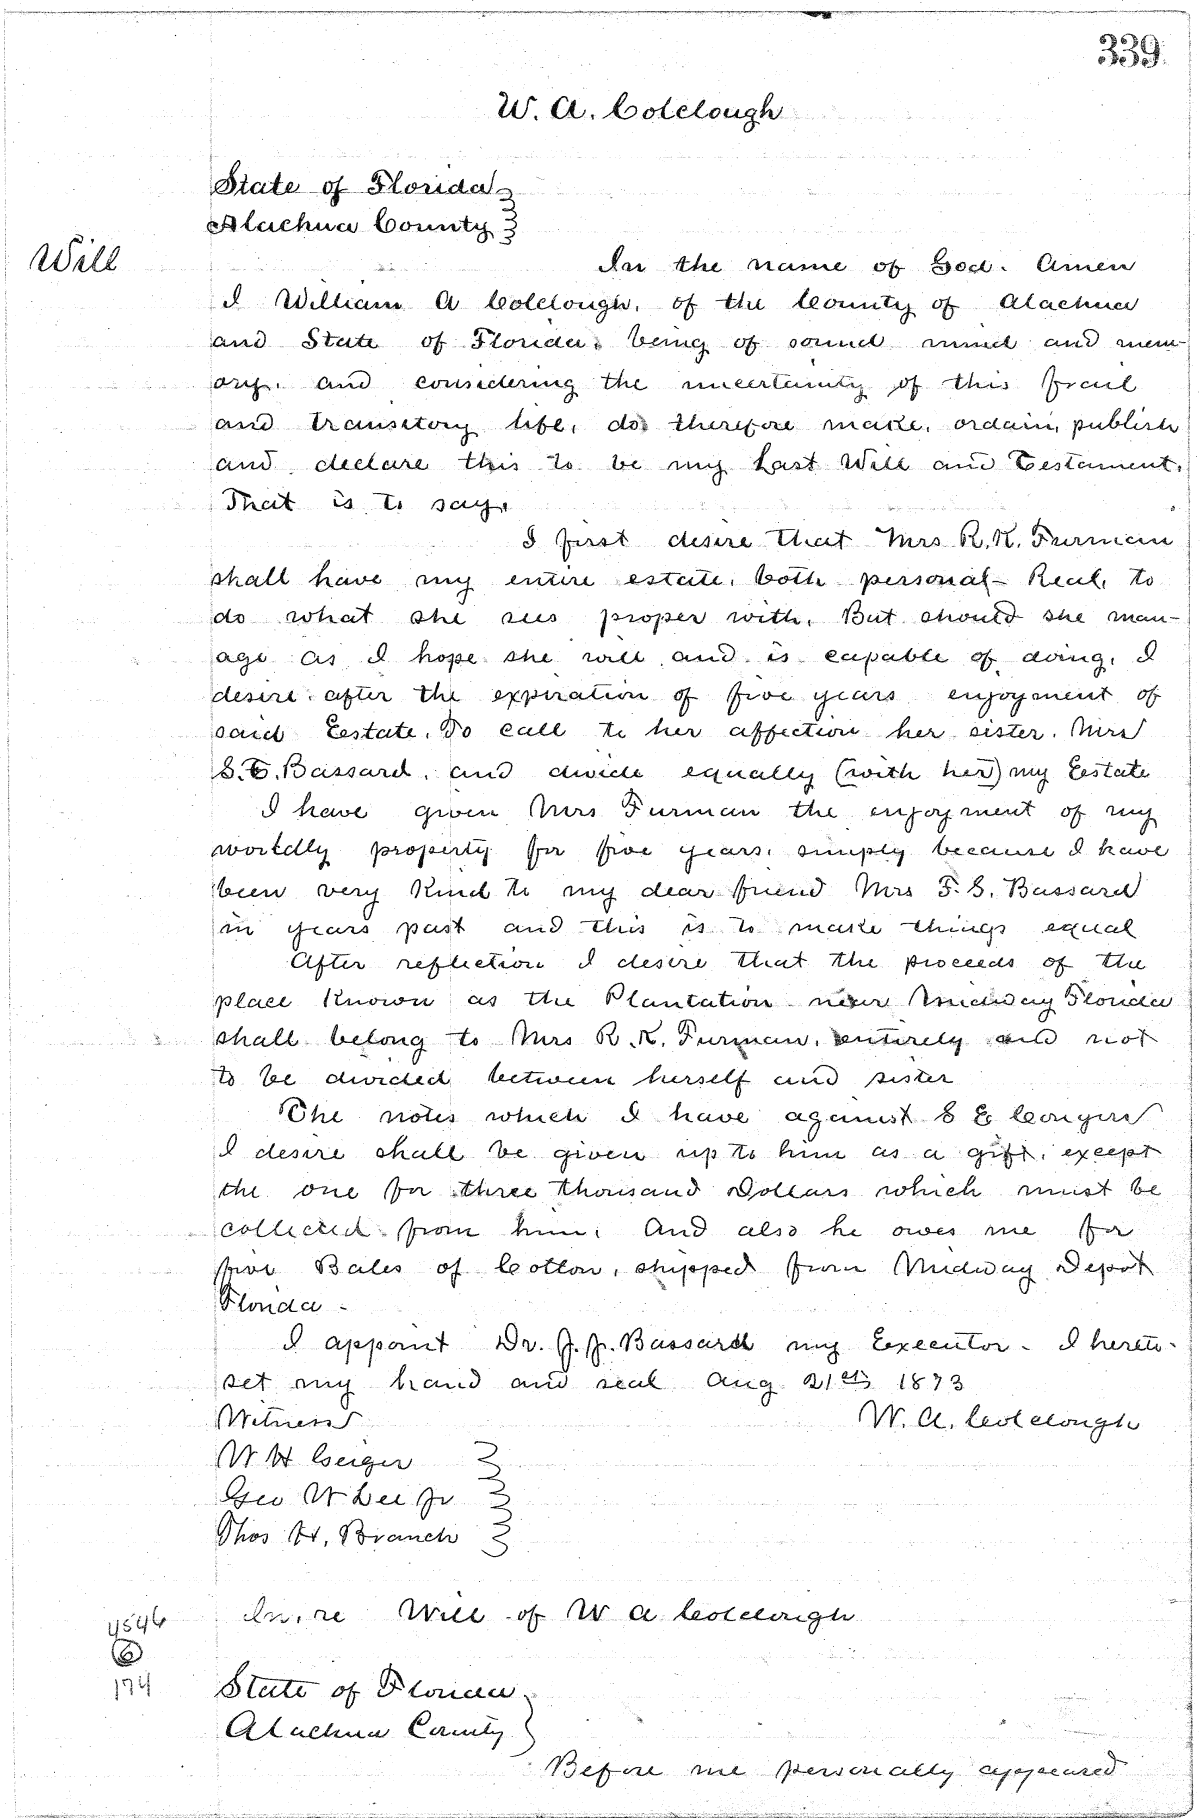 339
W. A. Colclough
State of Florida
Alachua County
Will
In the name of God. Amen
I William A Colclough, of the County of Alachua
and State of Florida, being of sound mind and mem-
ory, and considering the uncertainty of this frail
and transitory life, do therefore make, ordain, publish
and declare this to be my Last Will and Testament.
That is to say,
I first desire that Mrs R. K. Furman
shall have my entire estate, both personal - Real, to
do what she sees proper with. But should she man-
age as I hope she will and is capable of doing, I
desire after the expiration of five years enjoyment of
said Eestate, To call to her affection her sister, Mrs
S. E. Bassard, and divide equally (with her) my Eestate
I have given Mrs Furman the enjoyment of my
worldly property for five years, simply because I have
been very Kind to my dear friend Mrs F. S. Bassard
in years past and this is to make things equal
After reflection I desire that the proceeds of the
place Known as the Plantation near Midway Florida
shall belong to Mrs R. K. Furman, entirely and not
to be divided between herself and sister
The notes which I have against S E
I desire shall be given up to him as a gift, except
the one for three thousand Dollars which must be
collected from him. And also he owes me for
five Bales of Cotton, shipped from Midway Depot
Florida -
I appoint Dr. J. J. Bassard my Executor - I hereto-
set my hand and seal Aug 21st 1873
Witness
W. A. Colclough
W H Geiger
Geo W Lee Jr
Thos H. Branch
4546
6
174
In re Will of W A Colclough
State of Florida
Alachua County
Before me personally appeared